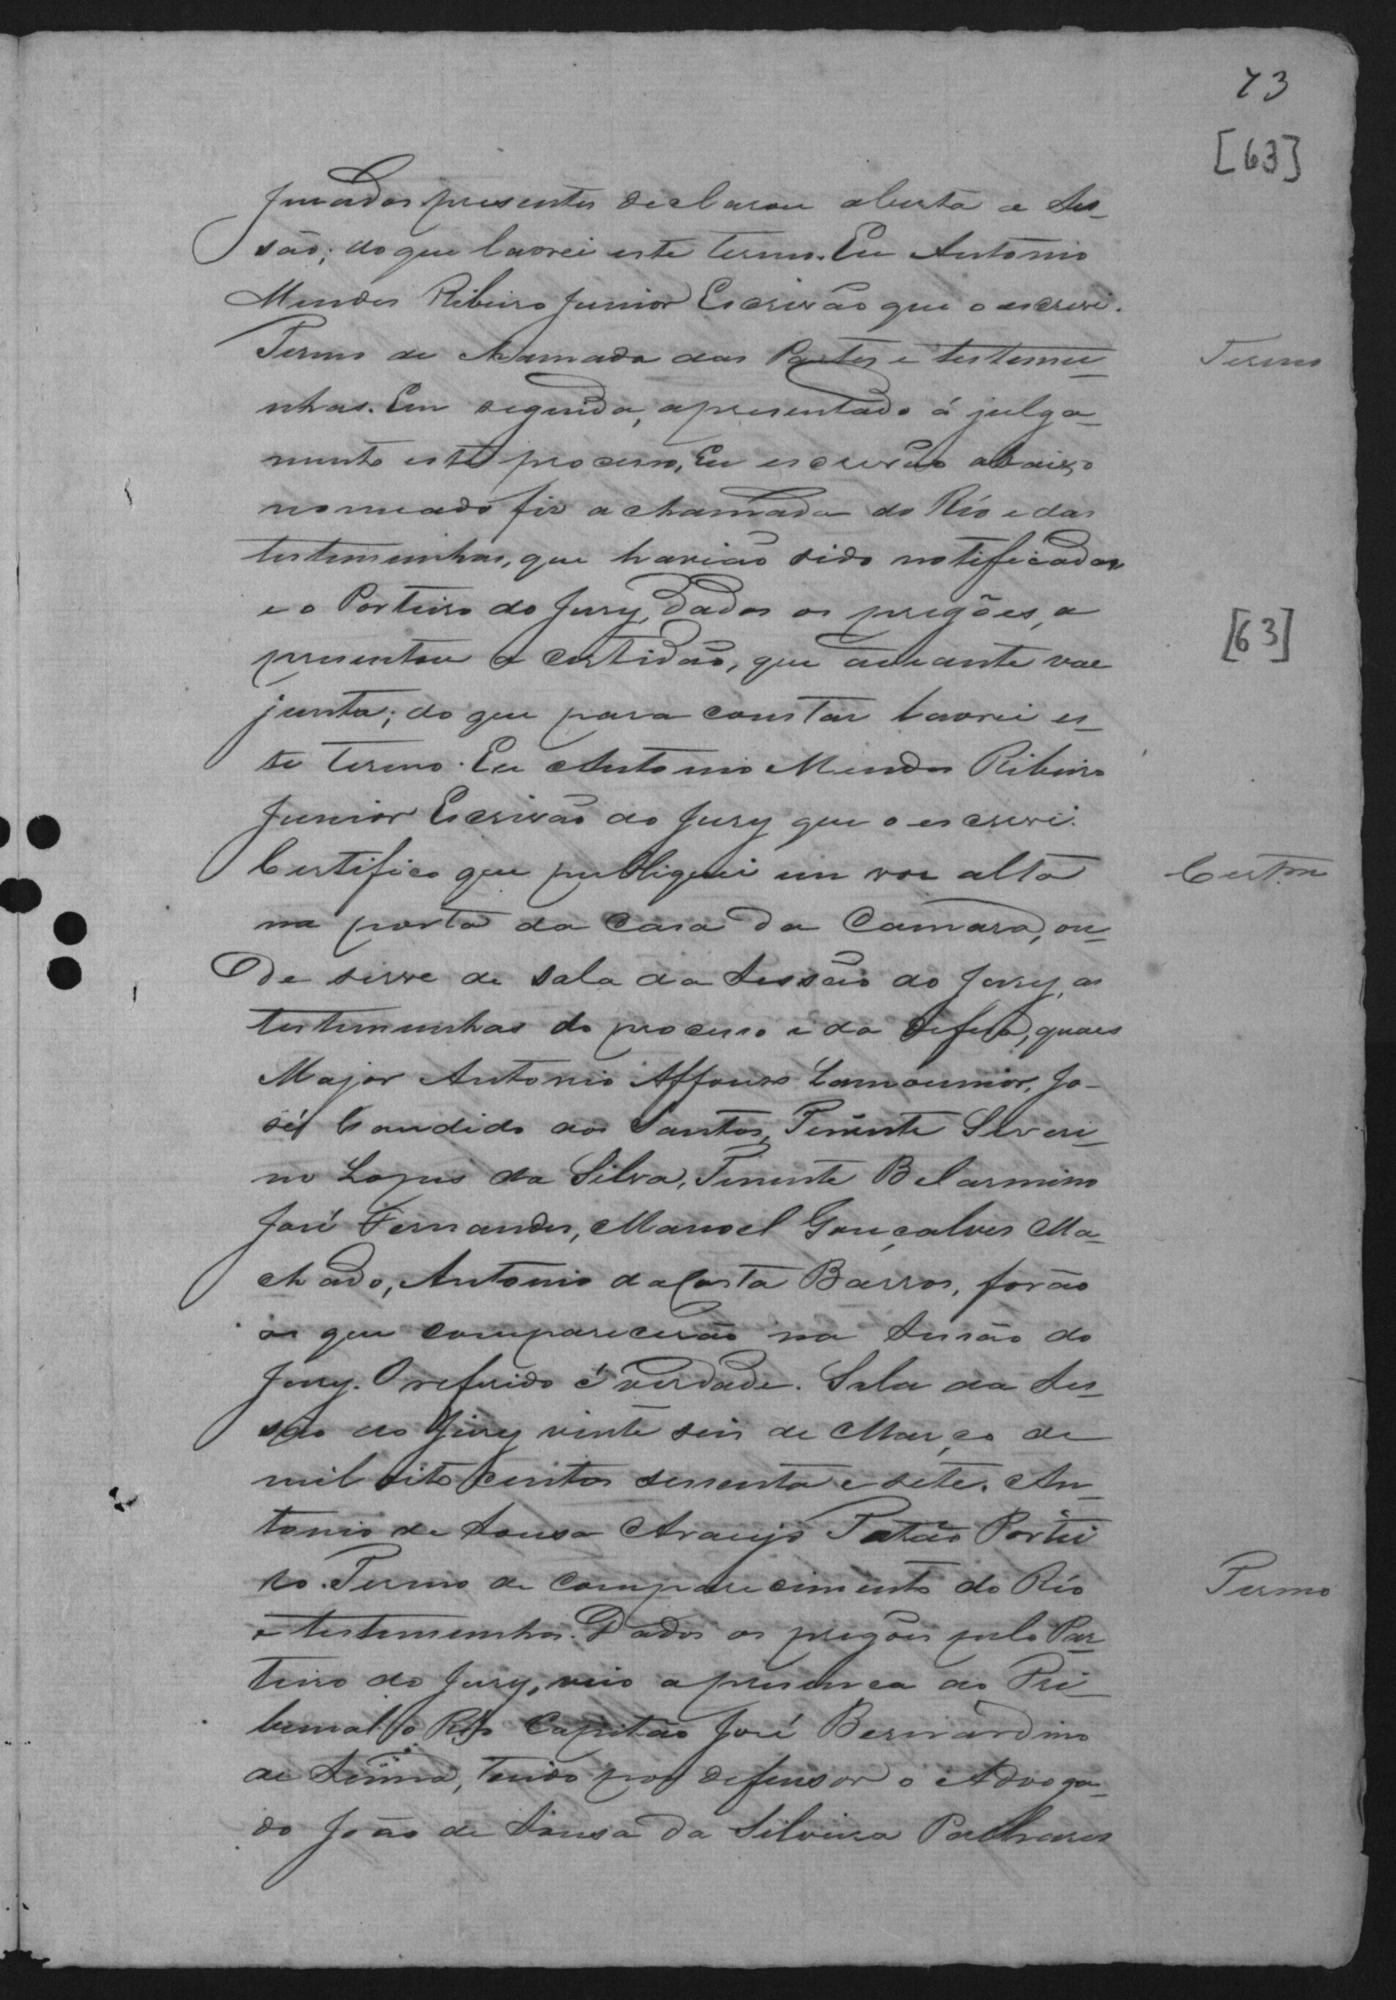 73
[63]
Jurados presentes declarou aberta a Ses-
são; do que lavrei este termo. Eu Antonio
Mendes Ribeiro Junior Escrivão que o escrevi.
Termo de chamada das Partes e testemu-
Termo
nhas. Em seguida, apresentado á julga-
mento este processo, Eu escrivão abaixo
nomeado fiz a chamada do Réo e das
testemunhas, que havião sido notificadas
e o Porteiro do Jury, dados os pregões, a
[63]
presentou a certidão, que adeante vae
junta; do que para constar lavrei es-
te termo. Eu Antonio Mendes Ribeiro
Junior Escrivão do Jury que o escrevi.
Certifico que publiquei em voz alta
Certam
na porta da Casa da Camara, on-
de serve de sala da Sessão do Jury, as
testemunhas do processo e da defesa, quaes
Major Antonio Affonso Lamounior, Jo-
sé Candido dos Santos, Tenente Severi-
no Lopes da Silva, Tenente Belarmino
José Fernandes, Manoel Gonçalves Ma-
chado, Antonio da Costa Barros, forão
os que comparecerão na Sessão do
Jury. O referido é verdade. Sala da Ses-
são do Jury vinte seis de Março de
mil oito centos sessenta e sete. An-
tonio de Sousa Araujo Porteii
ro. Termo de comparecimento do Réo
Termo
e testemunhas. Dados os pregões pelo Por-
teiro do Jury, veio a presença do Tri-
bunal o Réo Capitão José Bernardino
de Senna, tendo por defensor o Advoga-
do João de Sousa da Silveira Palhares